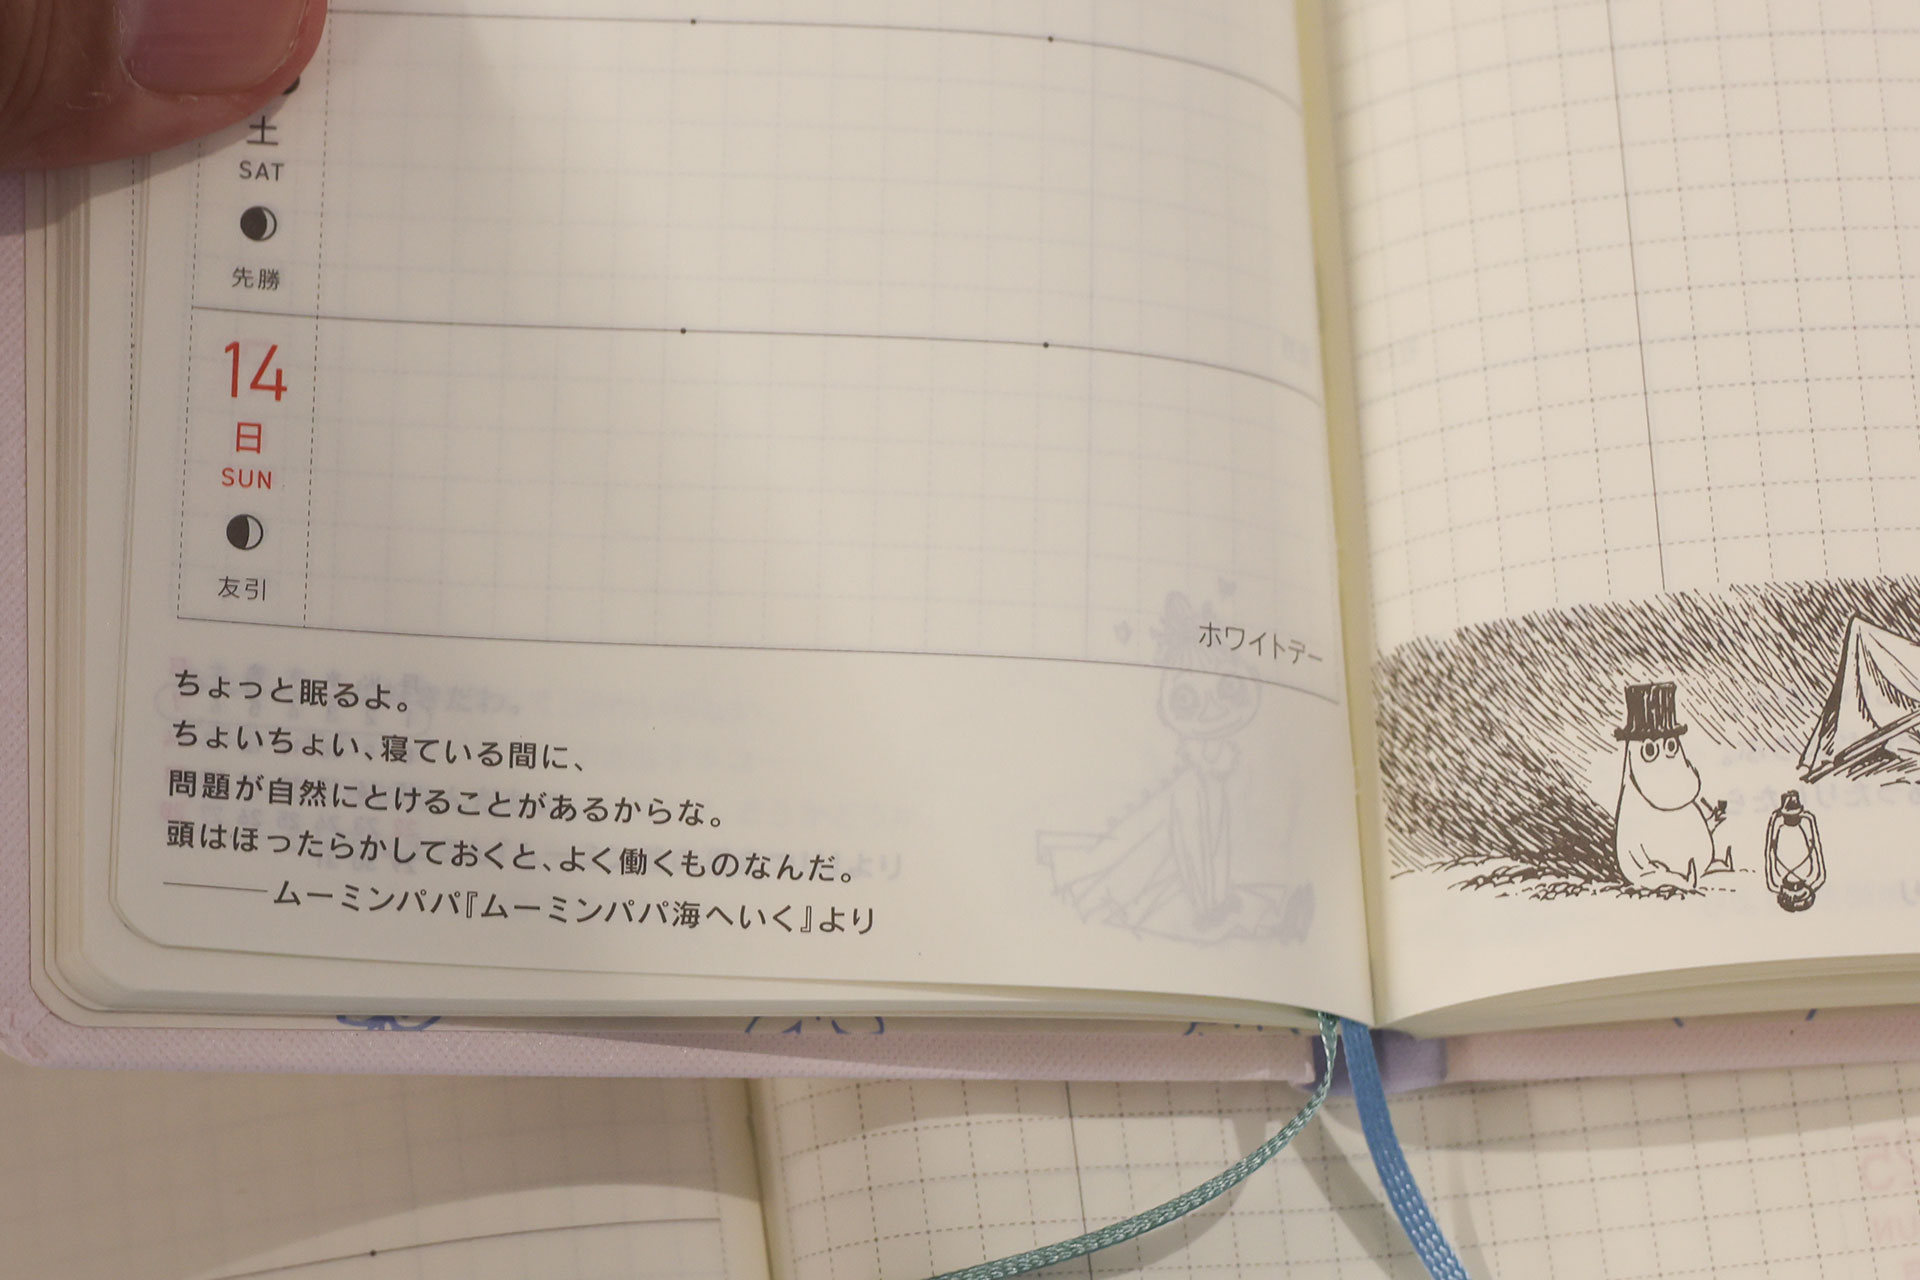 土
SAT
先勝
14
日
SUN
友引
ホワイトデー
ちょっと眠るよ。
ちょいちょい、寝ている間に、
問題が自然にとけることがあるからな。
頭はほったらかしておくと、よく働くものなんだ。
———ムーミンパパ『ムーミンパパ海へいく』より